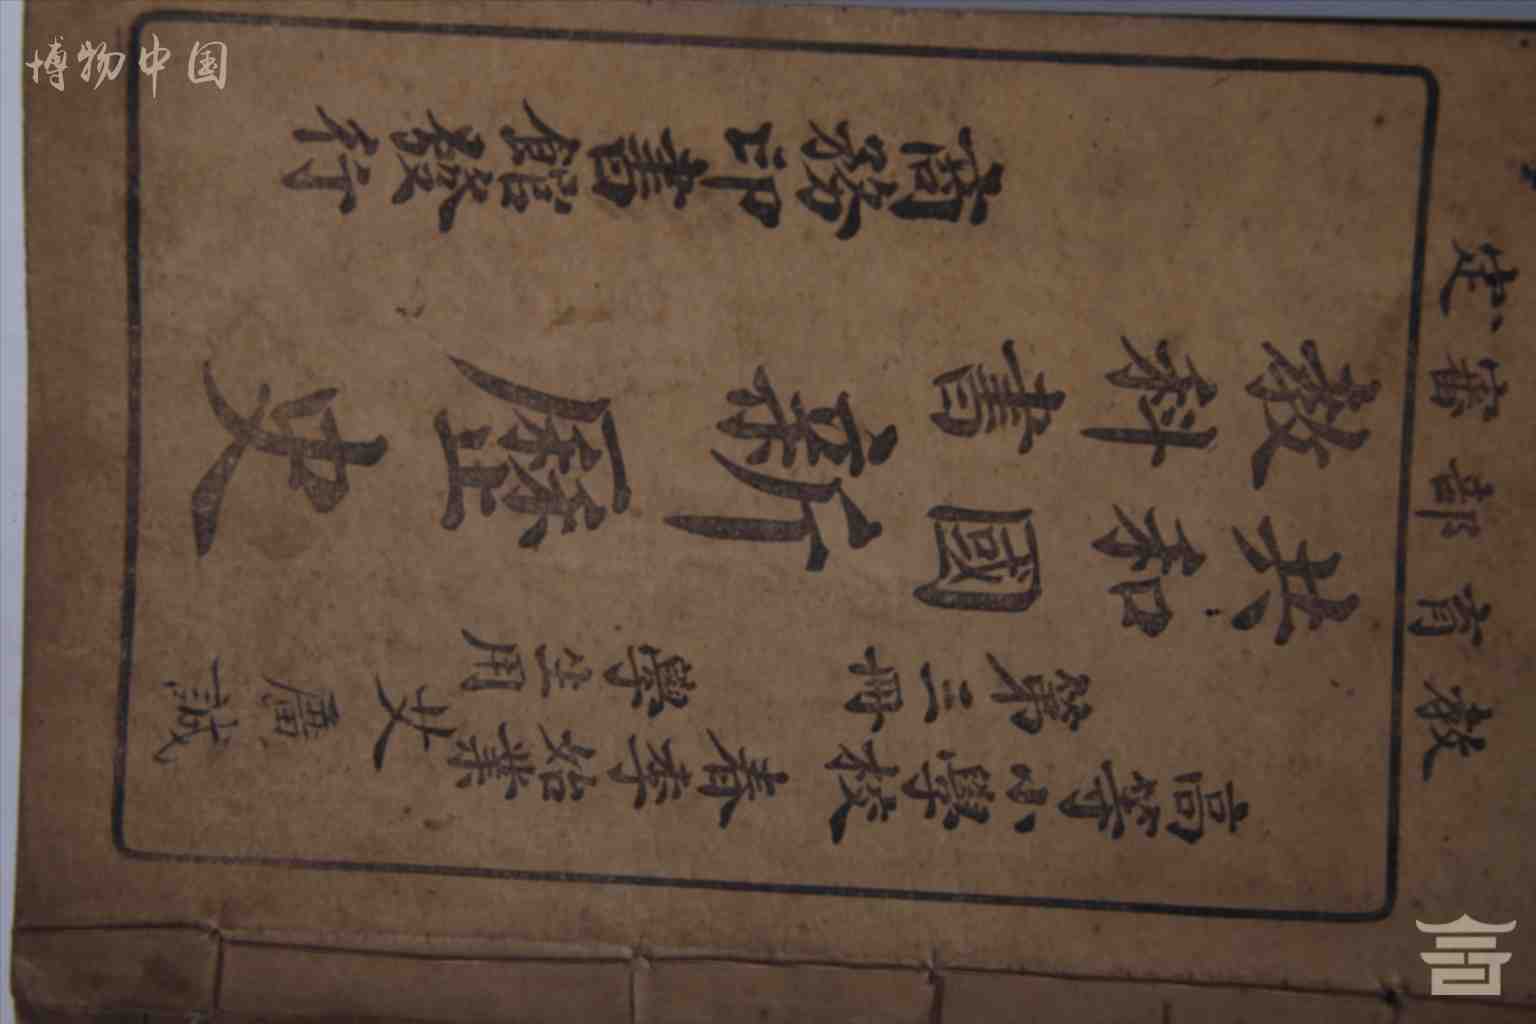 博物中国
教育部審定
高等小學校春季始業
第三冊學生用
共和國
教科書
新歷史
商務印書館發行
誠